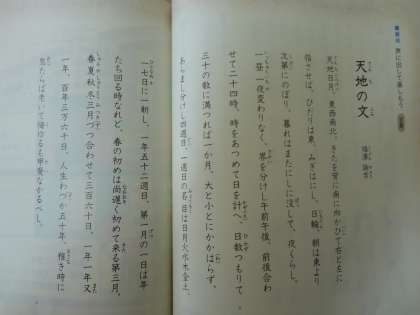 声に出して楽しもう
天地の文
福澤 諭吉
天地日月。東西南北。きたを背に南に向かひて右と左に
指させば、ひだりは東、みぎはにし。日輪、朝は東より
次第にのぼり、暮れはまたにしに没して、夜くらし。
一昼一夜変わりなく、界を分けし午前午後、前後合わ
せて二十四時、時をあつめて日を計へ、日数つもりて
三十の数に満つれば一か月、大と小とにかかはらず、
あらまし分けし四週日、一週日の名目は日月火水木金土、
一七日に一新し、一年五十二週日、第一月の一日は年
たち回る時なれど、春の初めは尚遅く初めて来る第三月、
春夏秋冬三月づつ合わせて三百六十日、一年一年又
一年、百年三万六千日、人生わづか五十年、稚き時に
怠たらば老いて悔ゆるとも甲斐なかるべし。